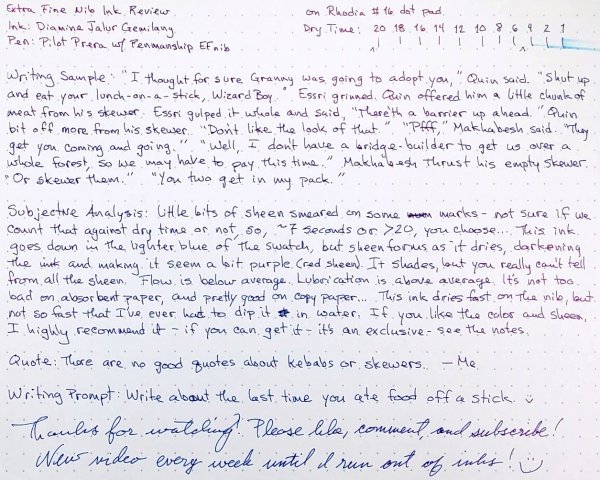 Extra Fine Nib Ink Review
on Rhodia #16 dot pad
Ink: Diamine Jalur Gemilang
Dry Time: 20 18 16 14 12 10 8 6 4 2 1
Pen: Pilot Prera w/ Penmanship EF nib
Writing Sample: "I thought for sure Granny was going to adopt you," Quin said. "Shut up
and eat your lunch-on-a-stick, Wizard Boy." Essri grinned. Quin offered him a little chunk of
meat from his skewer. Essri gulped it whole and said, "There'th a barrier up ahead." Quin
bit off more from his skewer. "Don't like the look of that." "Pfff," Makhabesh said. "They
get you coming and going." "Well, I don't have a bridge-builder to get us over a
whole forest, so we may have to pay this time." Makhabesh thrust his empty skewer.
"Or skewer them." "You two get in my pack."
Subjective Analysis: Little bits of sheen smeared on some marks - not sure if we
count that against dry time or not, so, ~7 seconds or >20, you choose... This ink
goes down in the lighter blue of the swatch, but sheen forms as it dries, darkening
the ink and making it seem a bit purple (red sheen). It shades, but you really can't tell
from all the sheen. Flow is below average. Lubrication is above average. It's not too
bad on absorbent paper, and pretty good on copy paper... This ink dries fast on the nib, but
not so fast that I've ever had to dip it in water. If you like the color and sheen,
I highly recommend it - if you can get it - it's an exclusive - see the notes.
Quote: There are no good quotes about kebabs or skewers. - Me
Writing Prompt: Write about the last time you ate food off a stick. :)
Thanks for watching! Please like, comment, and subscribe!
New video every week until I run out of inks! :)